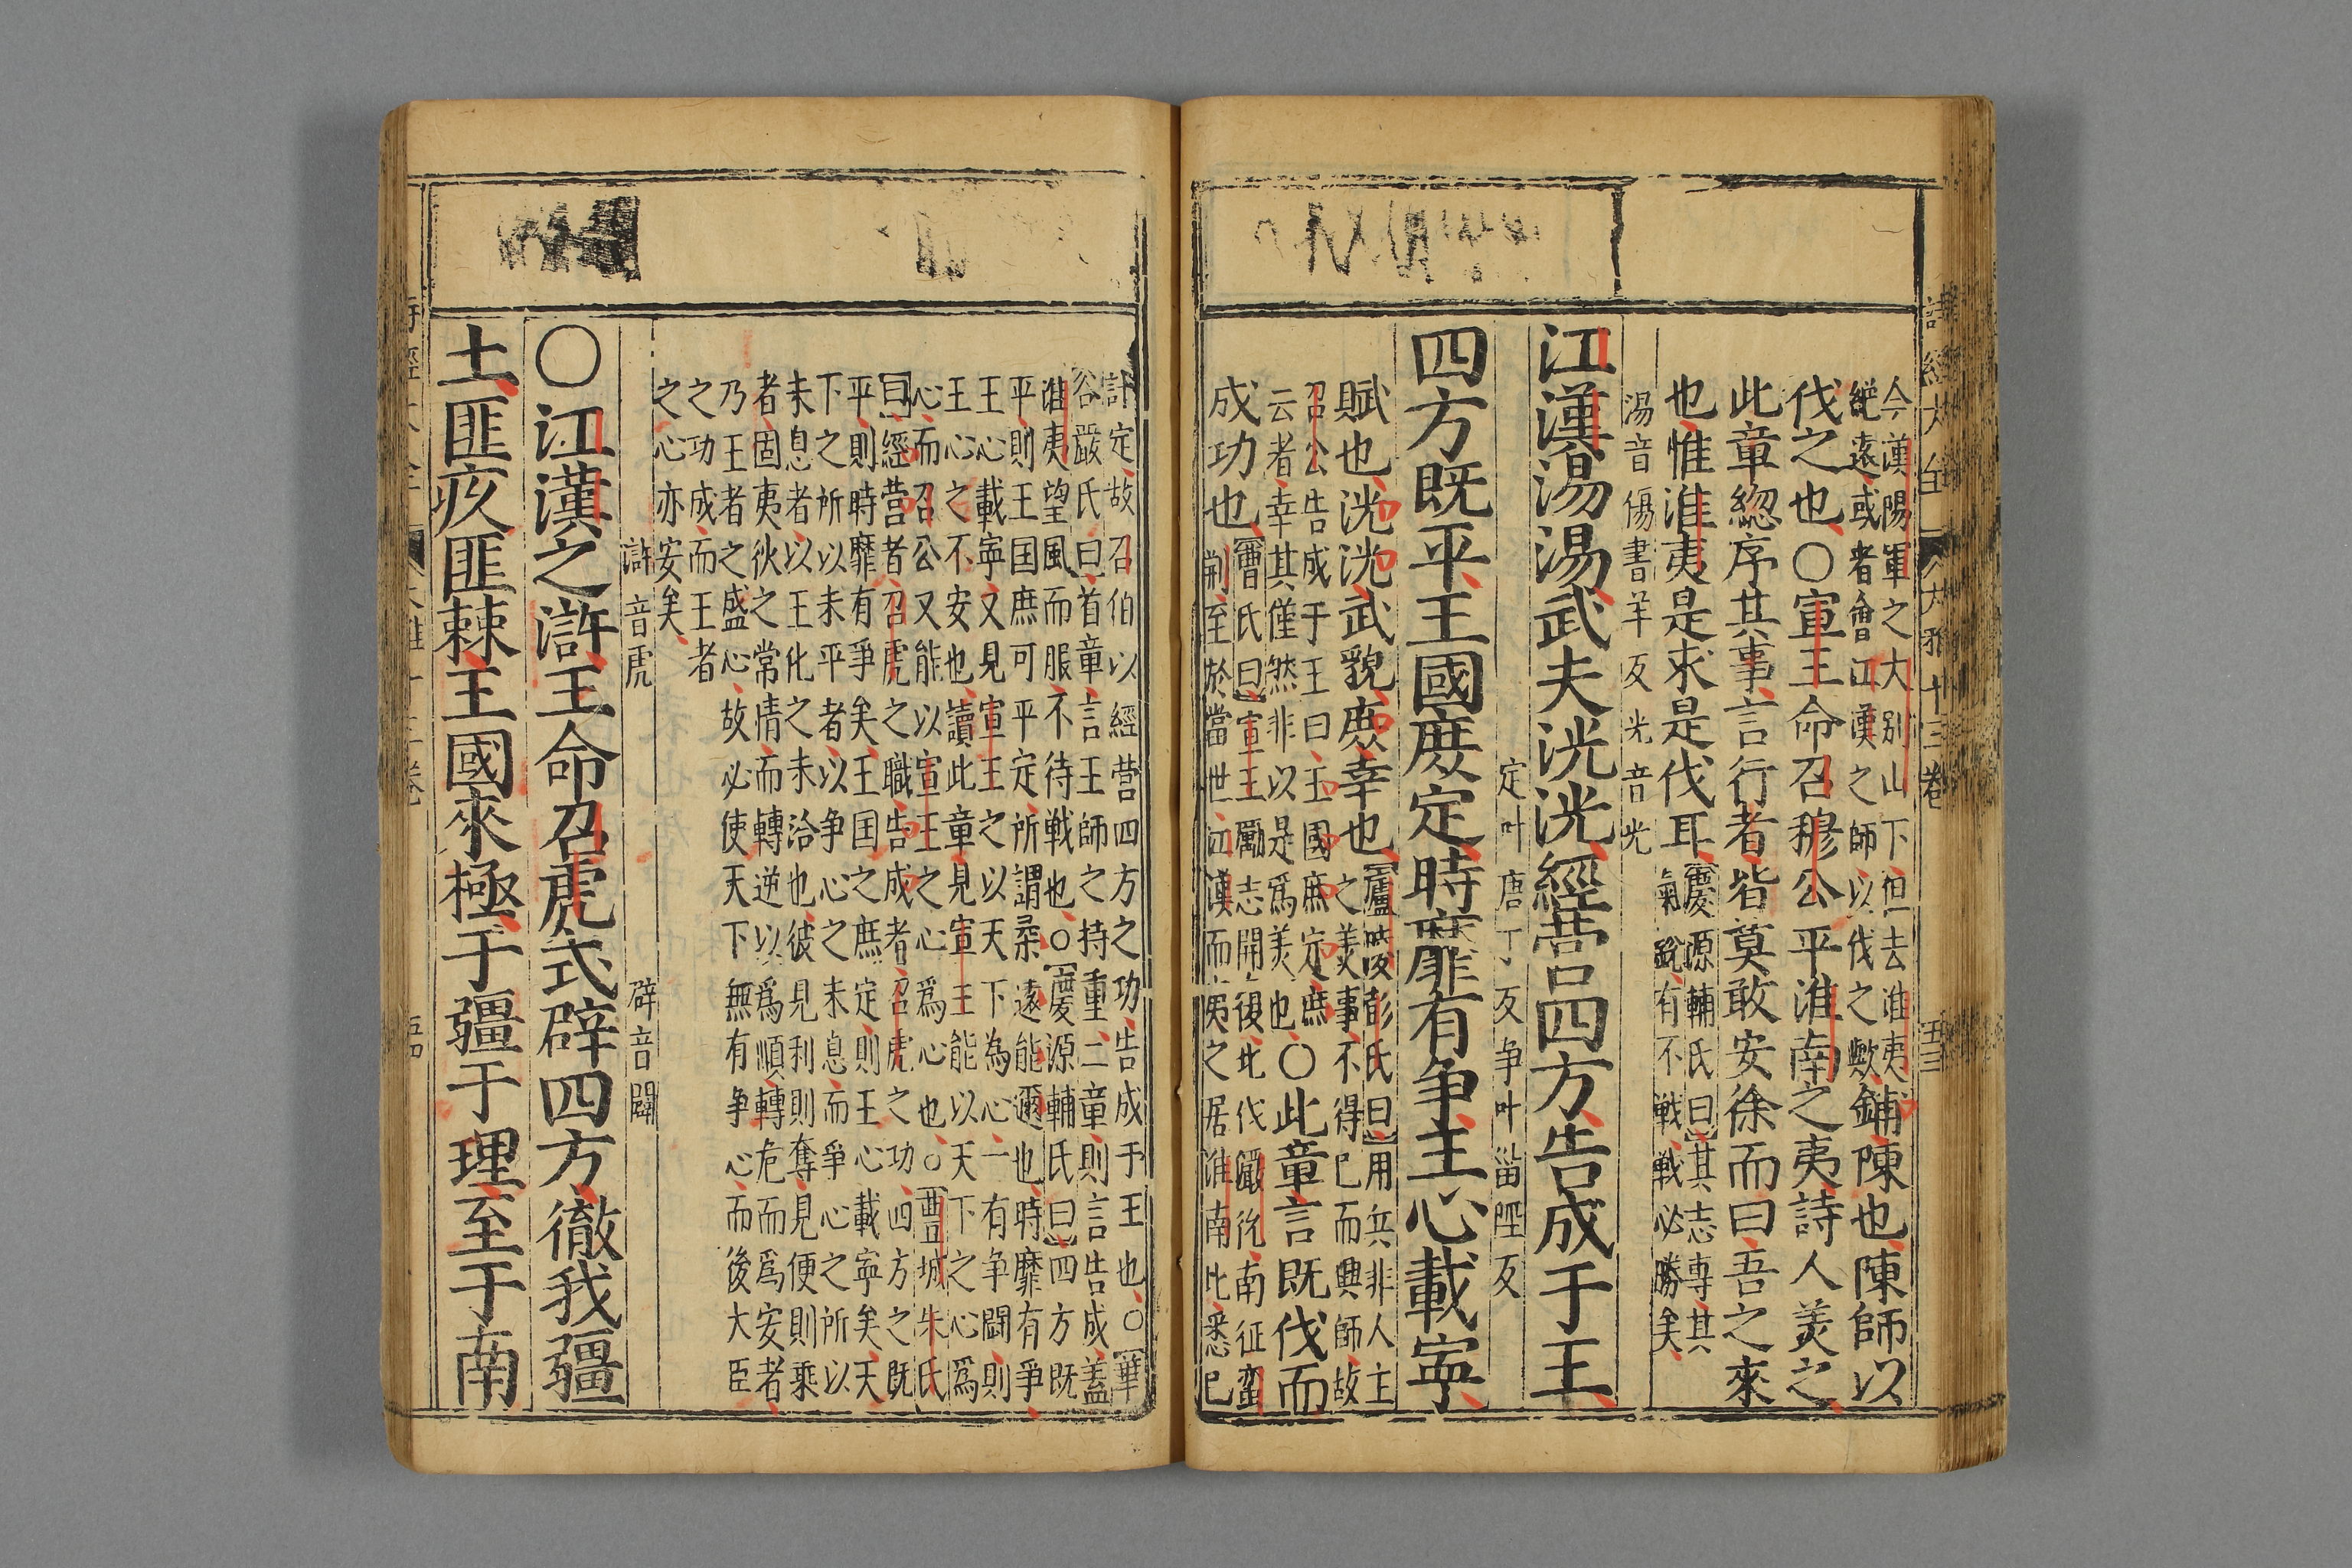 詩經大全 大雅十三卷 五三
今漢陽軍之大別山下但去淮夷
絕遠或者會江漢之師以伐之歟
鋪陳也陳師以
伐之也○宣王命召穆公平淮南之夷詩人美之
此章緫序其事言行者皆莫敢安徐而曰吾之來
也惟淮夷是求是伐耳
慶源輔氏曰其志專其
氣銳有不戰戰必勝矣
湯音傷書羊反光音光
江漢湯湯武夫洸洸經營四方告成于王
定叶唐丁反争叶甾陘反
四方既平王國庶定時靡有争王心載寧
賦也洸洸武貌庶幸也
廬陵彭氏曰用兵非人主
之美事不得已而興師故
召公告成于王曰王國庶定庶
云者幸其僅然非以是爲美也
○此章言既伐而
成功也
曹氏曰宣王勵志開復北伐玁狁南征蠻
荆至於當世江漢而南夷之居淮南北悉已
計定故召伯以經營四方之功告成于王也○華
谷嚴氏曰首章言王師之持重二章則言告成蓋
淮夷望風而服不待戰也○慶源輔氏曰四方既
平則王囯庶可平定所謂柔遠能邇也時靡有爭
王心載寧又見宣王之以天下為心一有争闘則
王心之不安也讀此章見宣王能以天下之心爲
心而召公又能以宣王之心爲心也○豊城朱氏
曰經营者召虎之職告成者召虎之功四方之既
平則時靡有爭矣王囯之庶定則王心載寧矣天
下之所以未平者以争心之未息而爭心之所以
未息者以王化之未洽也彼見利則奪見便則乘
者固夷狄之常情而轉逆以爲順轉危而爲安者
乃王者之盛心故必使天下無有争心而後大臣
之功成而王者
之心亦安矣
滸音虎 辟音闢
○江漢之滸王命召虎式辟四方徹我疆
土匪疚匪棘王國來極于疆于理至于南